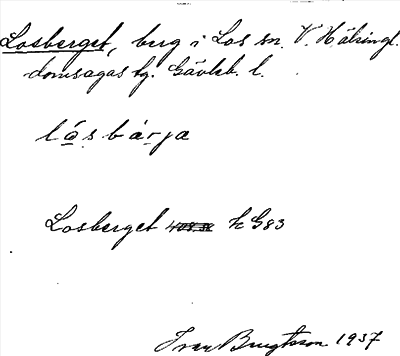 Losberget, berg i Los sn. V. Hälsingl.
domsagas tg. Gävleb. l.
låsbárja
Losberget k G83
Ivar Bengtsson 1937